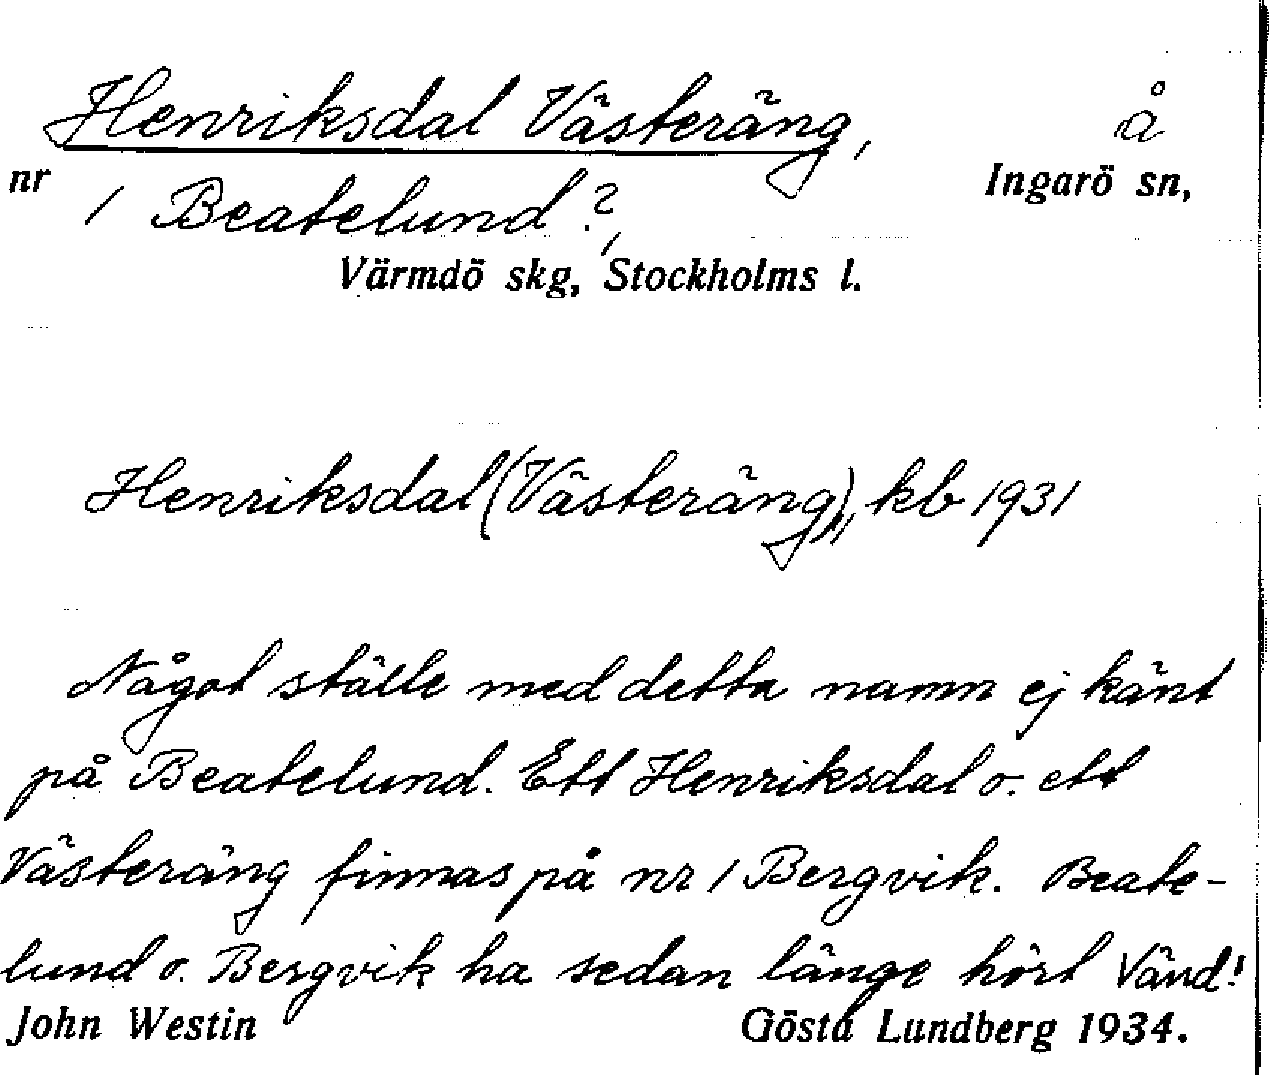 Henriksdal Västeräng, å
nr 1 Beatelund?, Ingarö sn,
Värmdö skg, Stockholms l.
Henriksdal (Västeräng), kb 1931
Något ställe med detta namn ej känt
på Beatelund. Ett Henriksdal o. ett
Västeräng finnas på nr 1 Bergvik. Beate-
lund o. Bergvik ha sedan länge hört Vänd!
John Westin Gösta Lundberg 1934.